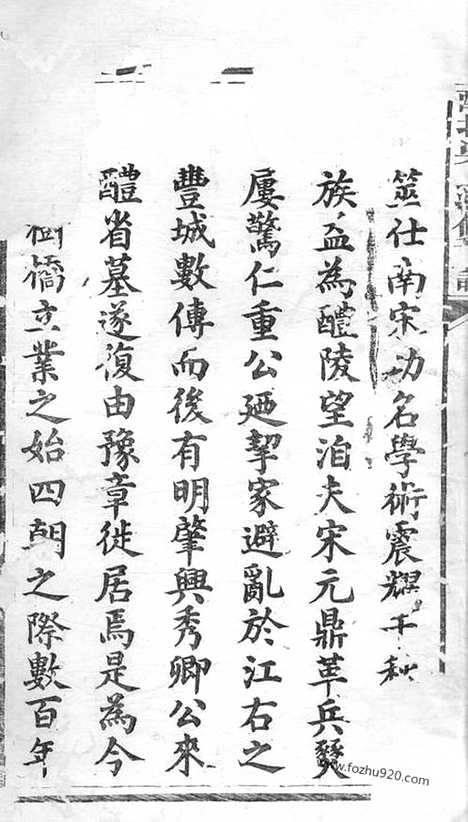 筮仕南宋功名學術震耀千秋
族益為醴陵望洎夫宋元鼎革兵燹
屢驚仁重公廼挈家避亂於江右之
豐城數傳而後有明肇興秀卿公來
醴省墓遂復由豫章徙居焉是為今
樹橋立業之始四朝之際數百年
www.fozhu920.com